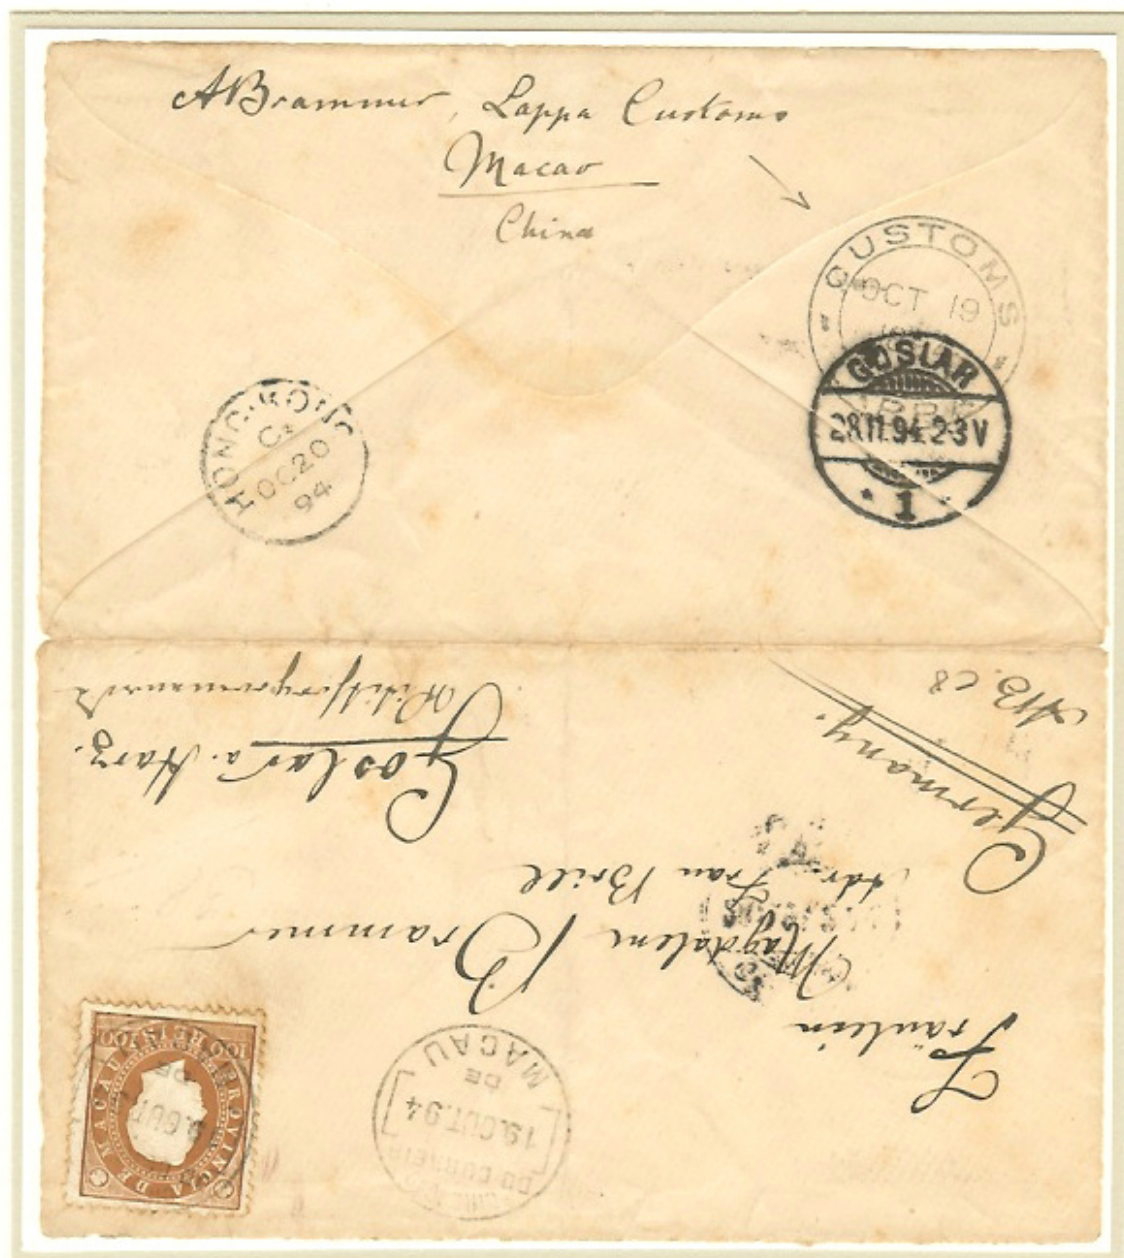 ABrammer, Lappa Customs
Macao
China
CUSTOMS
OCT 19
LAPPA
GOSLAR
28.11.94.2-3V
* 1 *
HONG KONG
C
OC 20
94
Fräulein
Magdalene Brammer
Adr. Frau Brill
Goslar a. Harz.
Germany.
AB. C8
DO CORREIO
19.OUT.94
DE
MACAU
PROVINCIA DE MACAU
100 REIS 100